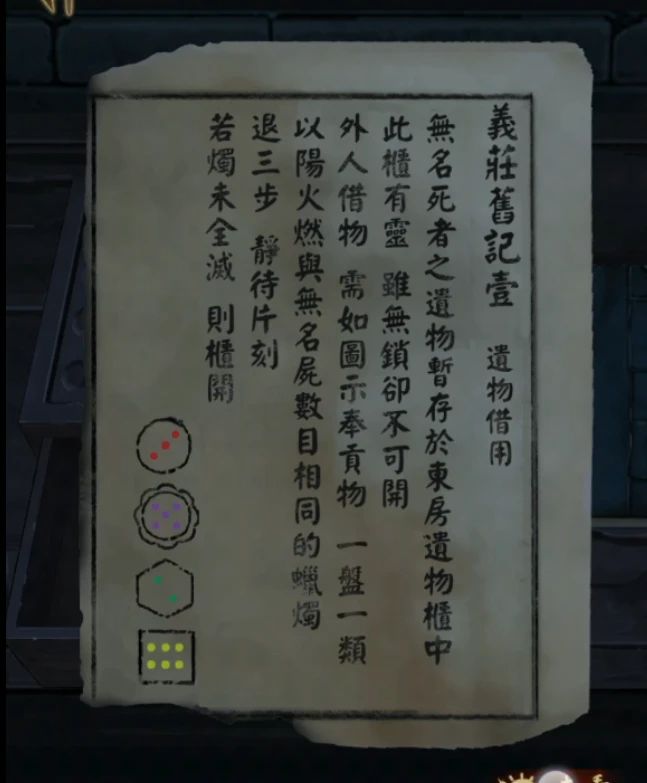 義莊舊記壹 遺物借用
無名死者之遺物暫存於東房遺物櫃中
此櫃有靈 雖無鎖卻不可開
外人借物 需如圖示奉貢物 一盤一類
以陽火燃與無名屍數目相同的蠟燭
退三步 靜待片刻
若燭未全滅 則櫃開